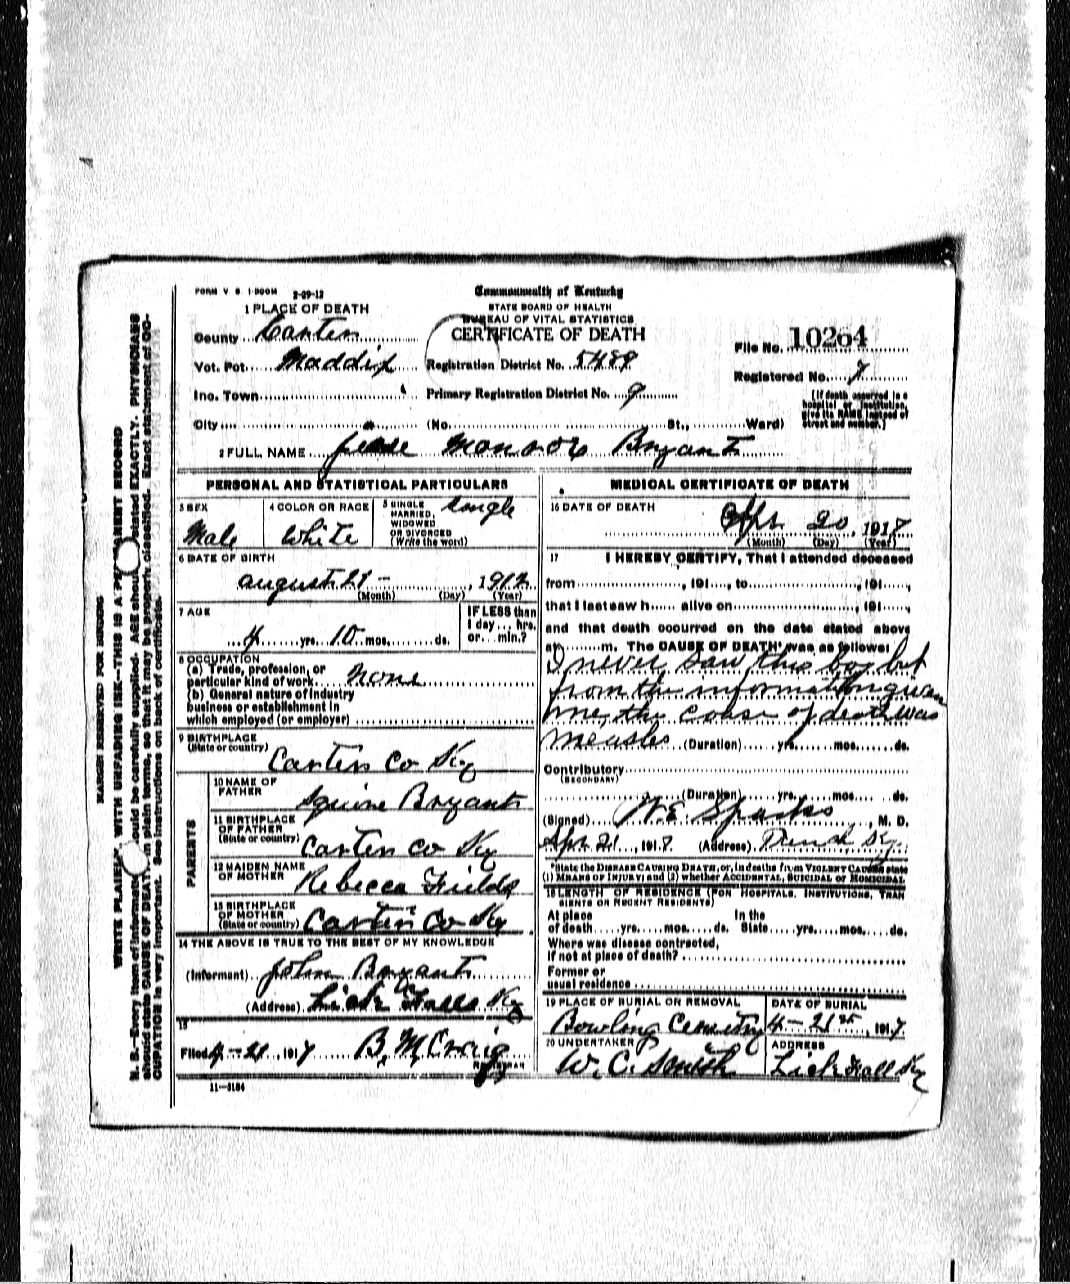 FORM V S 1-500M 2-29-12
Commonwealth of Kentucky
STATE BOARD OF HEALTH
BUREAU OF VITAL STATISTICS
CERTIFICATE OF DEATH
1 PLACE OF DEATH
County Carter
Vot. Pct. Maddix
Inc. Town
City (No. St., Ward)
Registration District No. 5489
Primary Registration District No. 9
File No. 10264
Registered No. 7
[If death occurred in a
hospital or institution,
give its NAME instead of
street and number.]
2 FULL NAME Monroe Bryant
PERSONAL AND STATISTICAL PARTICULARS
3 SEX
Male
4 COLOR OR RACE
White
5 SINGLE
MARRIED,
WIDOWED
OR DIVORCED
(Write the word)
single
6 DATE OF BIRTH
august 21 - , 1912
(Month) (Day) (Year)
7 AGE
4 yrs. 10 mos. ds.
IF LESS than
1 day... hrs.
or... min.?
8 OCCUPATION
(a) Trade, profession, or
particular kind of work none
(b) General nature of industry
business or establishment in
which employed (or employer)
9 BIRTHPLACE
(State or country)
Carter Co Ky
PARENTS
10 NAME OF
FATHER
Squire Bryant
11 BIRTHPLACE
OF FATHER
(State or country)
Carter Co Ky
12 MAIDEN NAME
OF MOTHER
Rebecca Fields
13 BIRTHPLACE
OF MOTHER
(State or country)
Carter Co Ky
14 THE ABOVE IS TRUE TO THE BEST OF MY KNOWLEDGE
(Informant) John Bryant
(Address) Lick Falls Ky
15
Filed 4-21, 1917 B. M. Craig
REGISTRAR
11-3184
MEDICAL CERTIFICATE OF DEATH
16 DATE OF DEATH
Apr. 20, 1917
(Month) (Day) (Year)
17 I HEREBY CERTIFY, That I attended deceased
from , 191 , to , 191 ,
that I last saw h alive on , 191 ,
and that death occurred on the date stated above
at m. The CAUSE OF DEATH* was as follows:
I never saw this boy but
from the information given
me, the cause of death was
measles (Duration) yrs. mos. ds.
Contributory
(SECONDARY)
(Duration) yrs. mos. ds.
(Signed) W. E. Sparks, M. D.
Apr 21, 1917 (Address) Ky.
*State the DISEASE CAUSING DEATH, or, in deaths from VIOLENT CAUSES state
(1) MEANS OF INJURY; and (2) whether ACCIDENTAL, SUICIDAL or HOMICIDAL.
18 LENGTH OF RESIDENCE (FOR HOSPITALS, INSTITUTIONS, TRAN
SIENTS OR RECENT RESIDENTS)
At place In the
of death yrs. mos. ds. State yrs. mos. ds.
Where was disease contracted,
if not at place of death?
Former or
usual residence
19 PLACE OF BURIAL OR REMOVAL
Bowling Cemetry
DATE OF BURIAL
4-21st, 1917
20 UNDERTAKER
W. C. Smith
ADDRESS
Lick Fall Ky
MARGIN RESERVED FOR BINDING
WRITE PLAINLY WITH UNFADING INK—THIS IS A PERMANENT RECORD
N. B.—Every item of information should be carefully supplied. AGE should be stated EXACTLY. PHYSICIANS
should state CAUSE OF DEATH in plain terms, so that it may be properly classified. Exact statement of OC-
CUPATION is very important. See instructions on back of certificate.